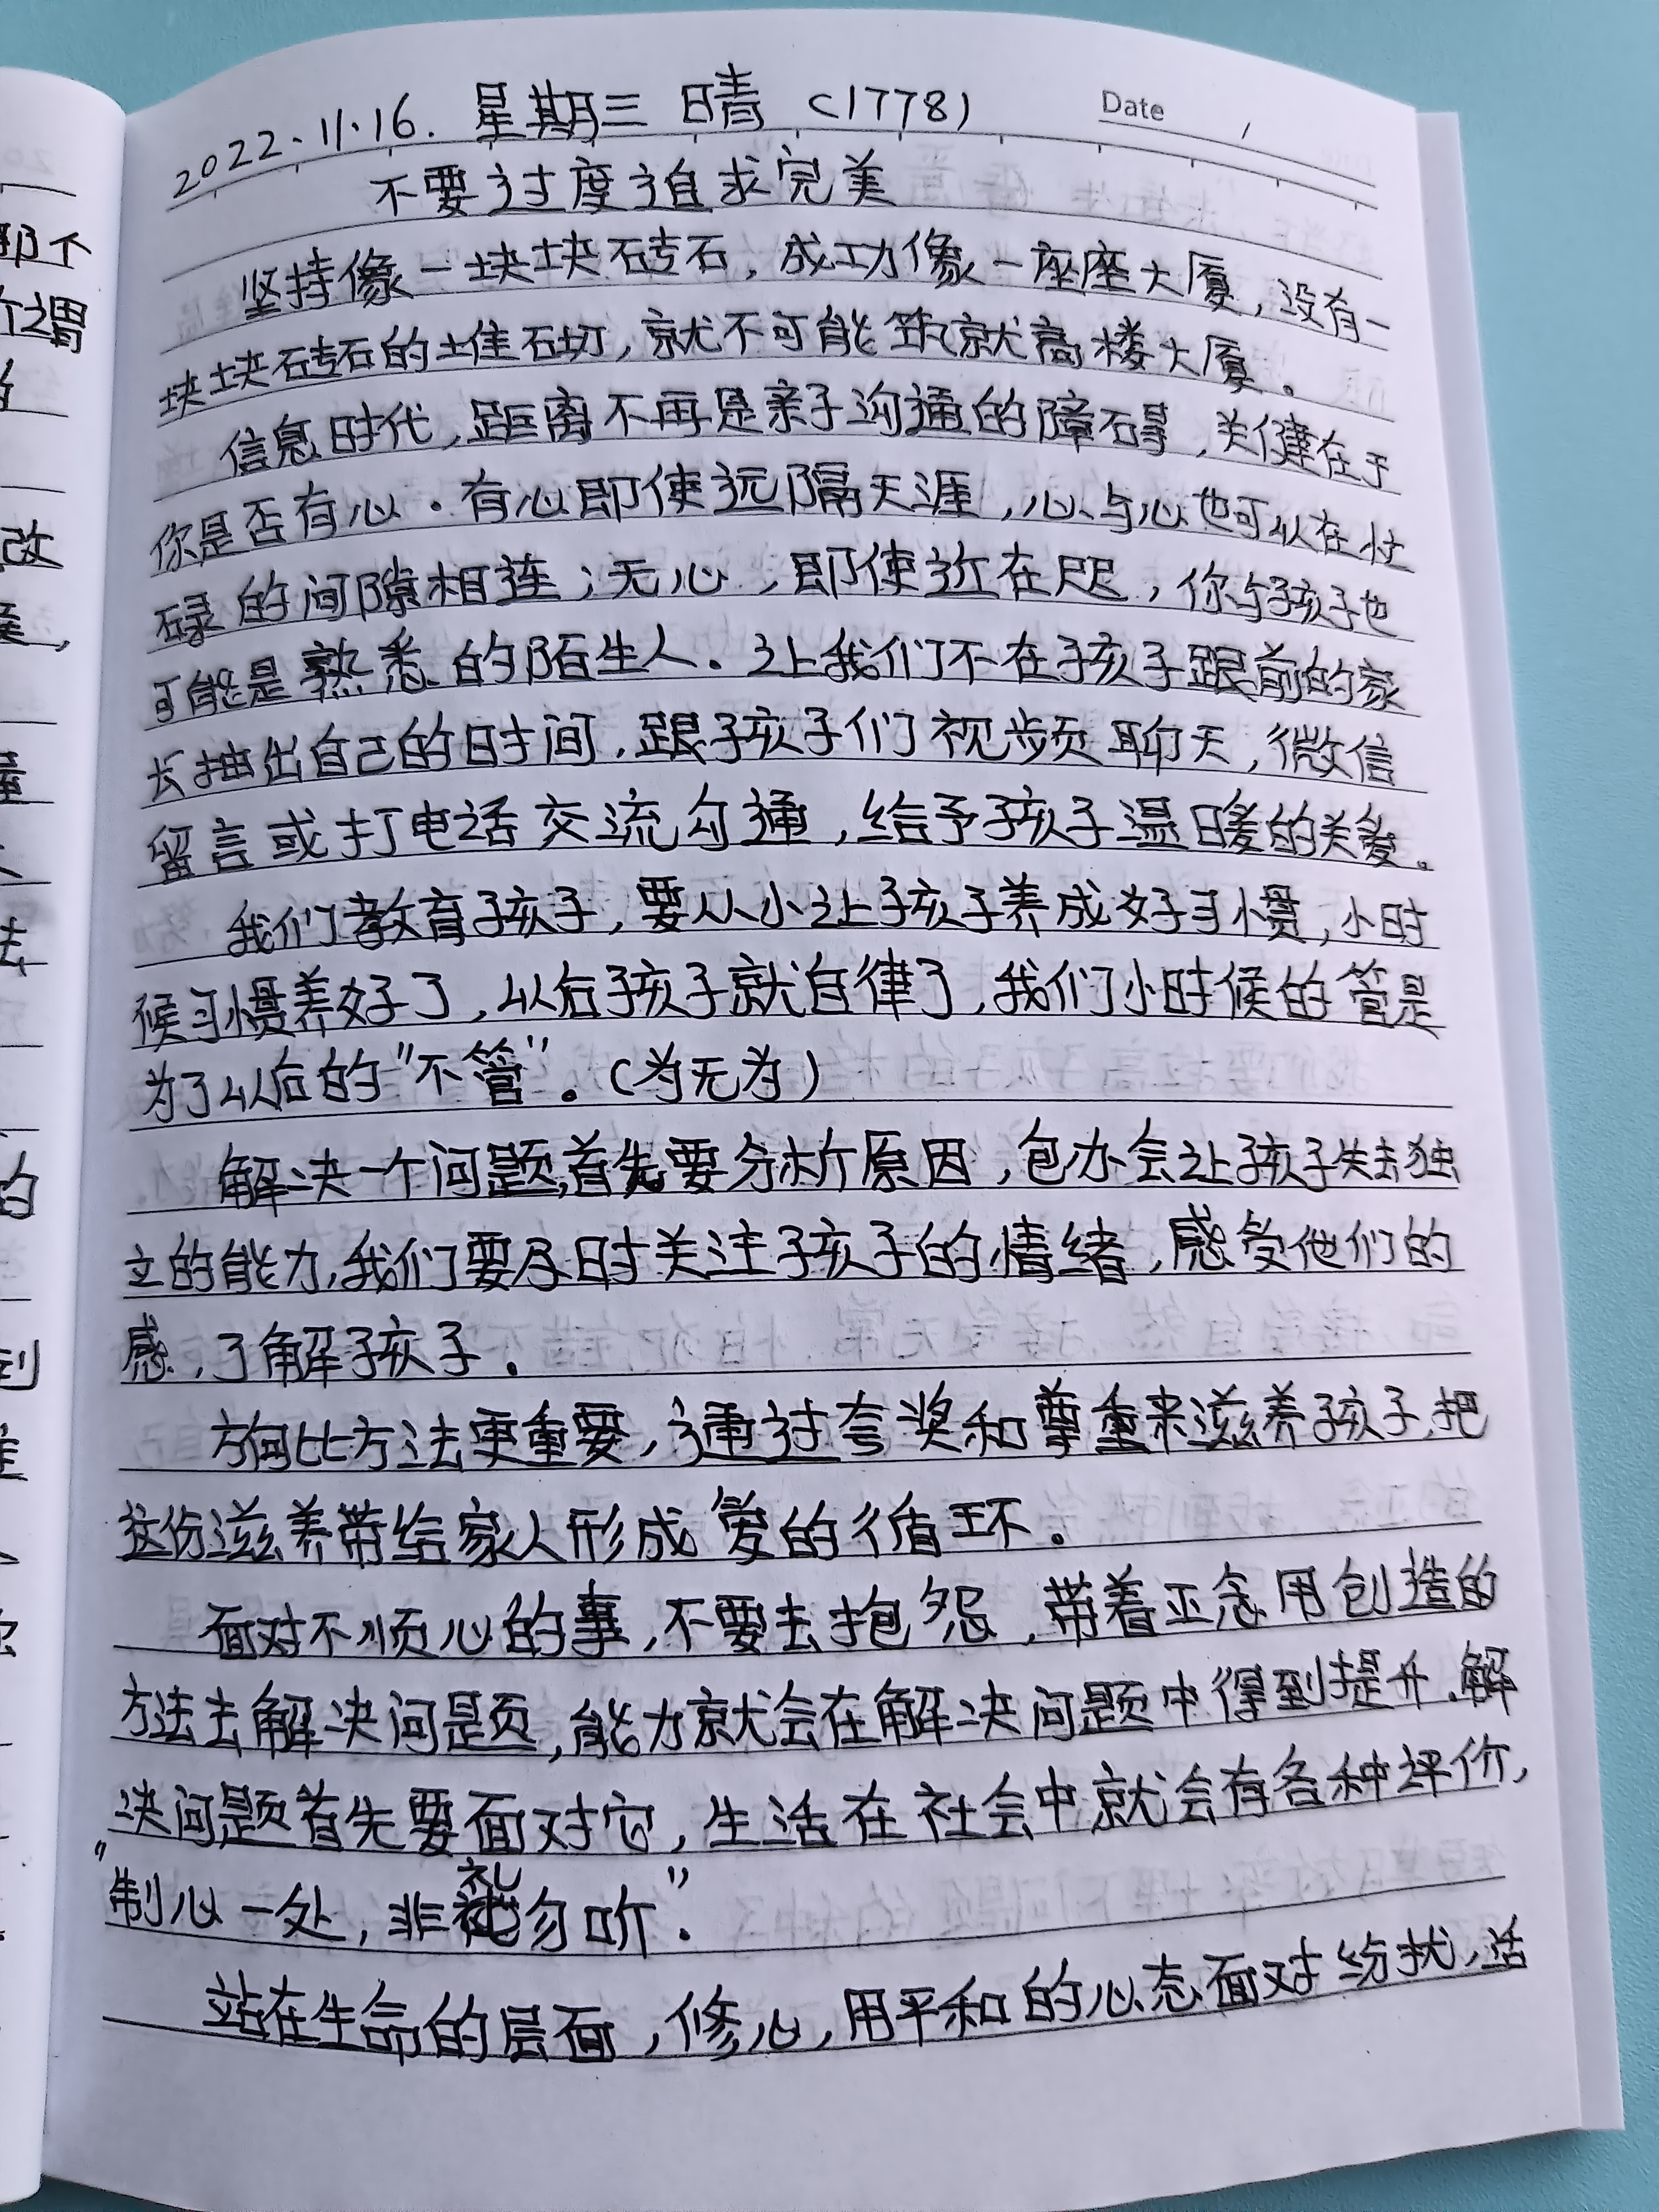 2022.11.16. 星期三 晴 (1778)
Date /
不要过度追求完美
坚持像一块块砖石，成功像一座座大厦，没有一
块块砖石的堆砌，就不可能筑就高楼大厦。
信息时代，距离不再是亲子沟通的障碍，关健在于
你是否有心．有心即使远隔天涯，心与心也可以在忙
碌的间隙相连；无心，即使近在咫，你与孩子也
可能是熟悉的陌生人．让我们不在孩子跟前的家
长抽出自己的时间，跟孩子们视频聊天，微信
留言或打电话交流勾通，给予孩子温暖的关爱。
我们教育孩子，要从小让孩子养成好习惯，小时
候习惯养好了，以后孩子就自律了，我们小时候的管是
为了以后的"不管"。(为无为)
解决一个问题，首先要分析原因，包办会让孩子失去独
立的能力，我们要及时关注孩子的情绪，感受他们的
感，了解孩子．
方向比方法更重要，通过夸奖和尊重来滋养孩子，把
这份滋养带给家人形成爱的循环。
面对不顺心的事，不要去抱怨，带着正念用创造的
方法去解决问题，能力就会在解决问题中得到提升．解
决问题首先要面对它，生活在社会中就会有各种评价，
"制心一处，非礼勿听"．
站在生命的层面，修心，用平和的心态面对纷扰，活